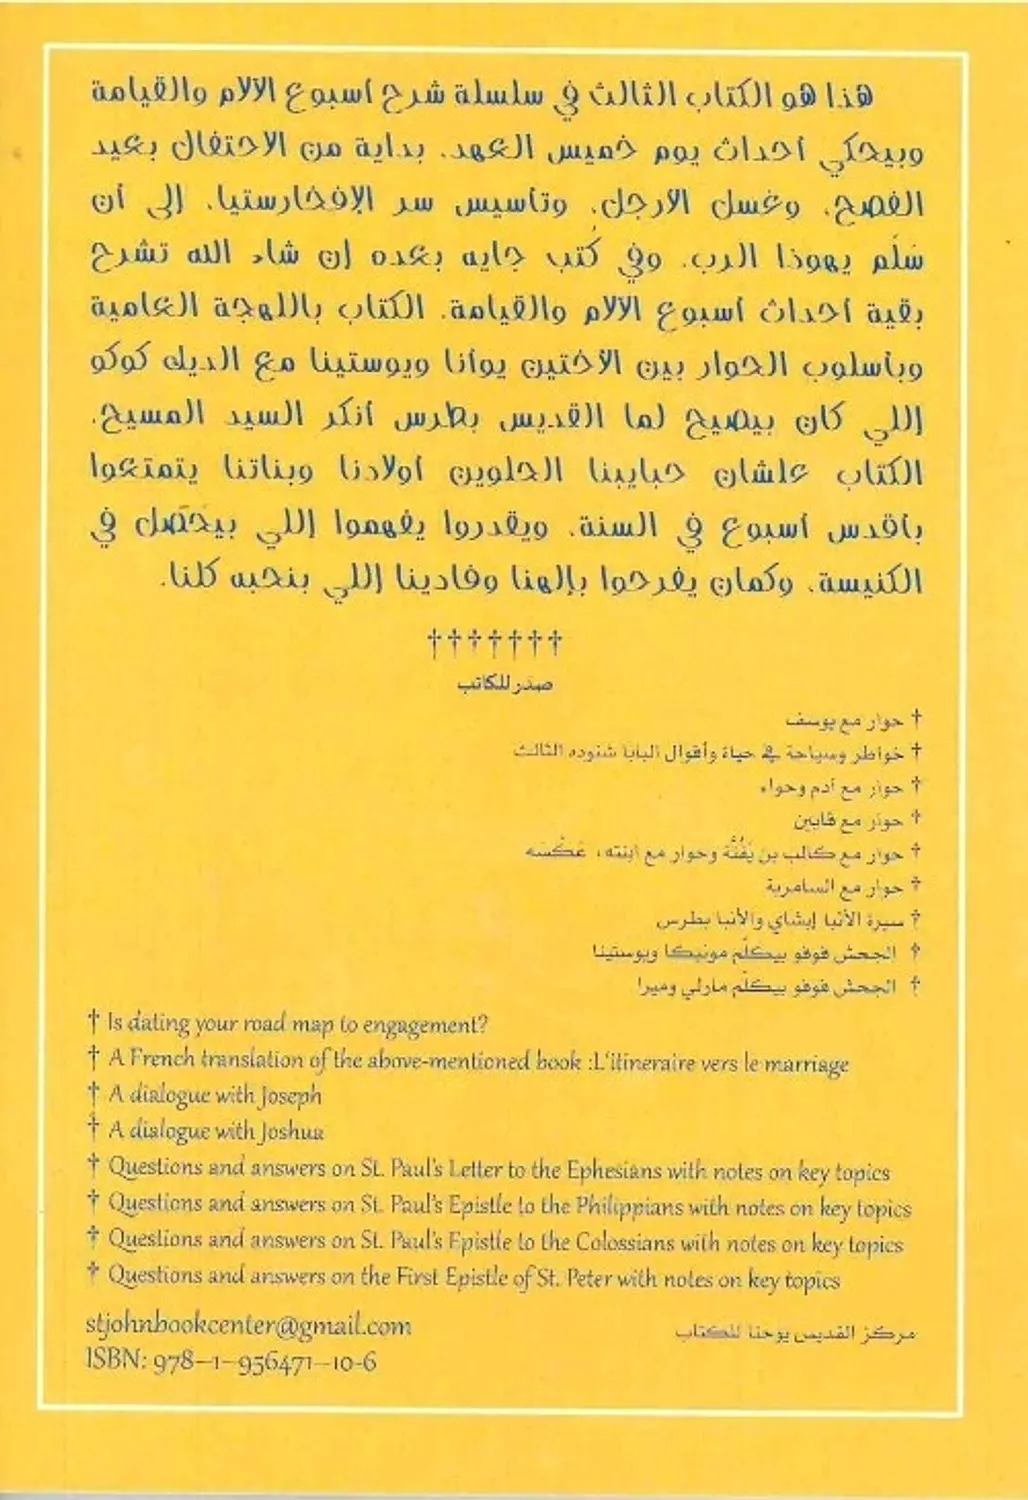 هذا هو الكتاب الثالث في سلسلة شرح أسبوع الآلام والقيامة
وبيحكي أحداث يوم خميس العهد. بداية من الاحتفال بعيد
الفصح، وغسل الأرجل، وتأسيس سر الإفخارستيا، إلى أن
سَلّم يهوذا الرب. وفي كُتب جايه بعده إن شاء الله تشرح
بقية أحداث أسبوع الآلام والقيامة. الكتاب باللهجة العامية
وبأسلوب الحوار بين الأختين يوأنا ويوستينا مع الديك كوكو
إللي كان بيصيح لما القديس بطرس أنكر السيد المسيح.
الكتاب علشان حبايبنا الحلوين أولادنا وبناتنا يتمتعوا
بأقدس أسبوع في السنة. ويقدروا يفهموا إللي بيحَصَل في
الكنيسة. وكمان يفرحوا بإلهنا وفادينا إللي بنحبه كلنا.
† † † † † † †
صدر للكاتب
† حوار مع يوسف
† خواطر وسياحة في حياة وأقوال البابا شنوده الثالث
† حوار مع آدم وحواء
† حوار مع قايين
† حوار مع كالب بن يَفُنَّة وحوار مع ابنته، عَكْسَه
† حوار مع السامرية
† سيرة الأنبا إيشاي والأنبا بطرس
† الجحش فوفو بيكلّم مونيكا ويوستينا
† الجحش فوفو بيكلّم مارلي وميرا
† Is dating your road map to engagement?
† A French translation of the above-mentioned book :L'itineraire vers le marriage
† A dialogue with Joseph
† A dialogue with Joshua
† Questions and answers on St. Paul's Letter to the Ephesians with notes on key topics
† Questions and answers on St. Paul's Epistle to the Philippians with notes on key topics
† Questions and answers on St. Paul's Epistle to the Colossians with notes on key topics
† Questions and answers on the First Epistle of St. Peter with notes on key topics
stjohnbookcenter@gmail.com
مركز القديس يوحنا للكتاب
ISBN: 978-1-956471-10-6